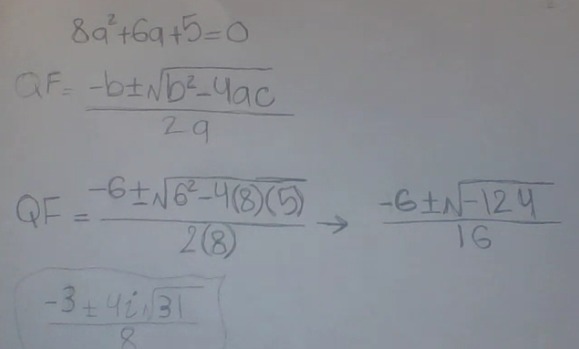 8a²+6a+5=0
QF= -b±√b²-4ac / 2a
QF = -6±√6²-4(8)(5) / 2(8) → -6±√-124 / 16
-3±4i√31 / 8